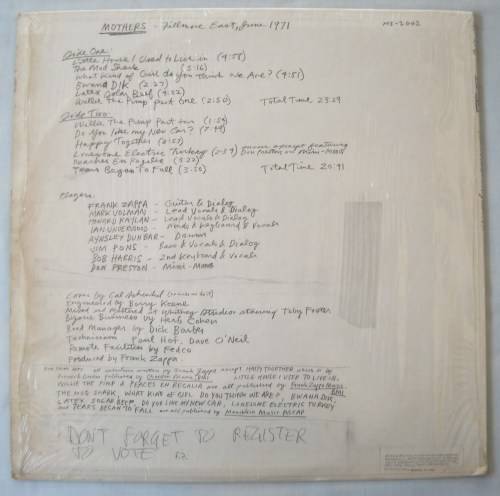 MOTHERS - Fillmore East, June 1971
MS-2042
Side One:
Little House I Used to Live in (4:58)
The Mud Shark (5:16)
What Kind of Girl do you think We Are? (4:51)
Bwana Dik (2:27)
Latex Solar Beef (4:22)
Willie The Pimp part one (2:50) Total Time
Side Two:
Willie The Pimp part two (1:54)
Do You like my New Car?
Happy Together (2:57)
Lonesome Electric Turkey featuring Don Preston on Mini-Moog
Peaches En Regalia (3:22)
Tears Began To Fall Total Time 20:41
Players:
FRANK ZAPPA - Guitar & Dialog
MARK VOLMAN - Lead Vocals & Dialog
HOWARD KAYLAN - Lead Vocals & Dialog
IAN UNDERWOOD - Winds & Keyboard & Vocals
AYNSLEY DUNBAR - Drums
JIM PONS - Bass & Vocals & Dialog
BOB HARRIS - 2nd Keyboard & Vocals
DON PRESTON - Mini-Moog
Cover by Cal Schenkel
Engineered by Barry Keene
Mixed and Mastered at Whitney Studios starring Toby Foster
Bizarre Business by Herb Cohen
Road Manager by Dick Barber
Technicians Paul Hof, Dave O'Neil
Remote Facilities by Fedco
Produced by Frank Zappa
all selections written by Frank Zappa except HAPPY TOGETHER which is by
published by LITTLE HOUSE I USED TO LIVE IN,
WILLIE THE PIMP & PEACHES EN REGALIA are all published by Frank Zappa Music, BMI
THE MUD SHARK, WHAT KIND OF GIRL DO YOU THINK WE ARE?, BWANA DIK,
LATEX SOLAR BEEF, DO YOU LIKE MY NEW CAR, LONESOME ELECTRIC TURKEY
and TEARS BEGAN TO FALL are all published by Music ASCAP
DON'T FORGET TO REGISTER
TO VOTE F.Z.